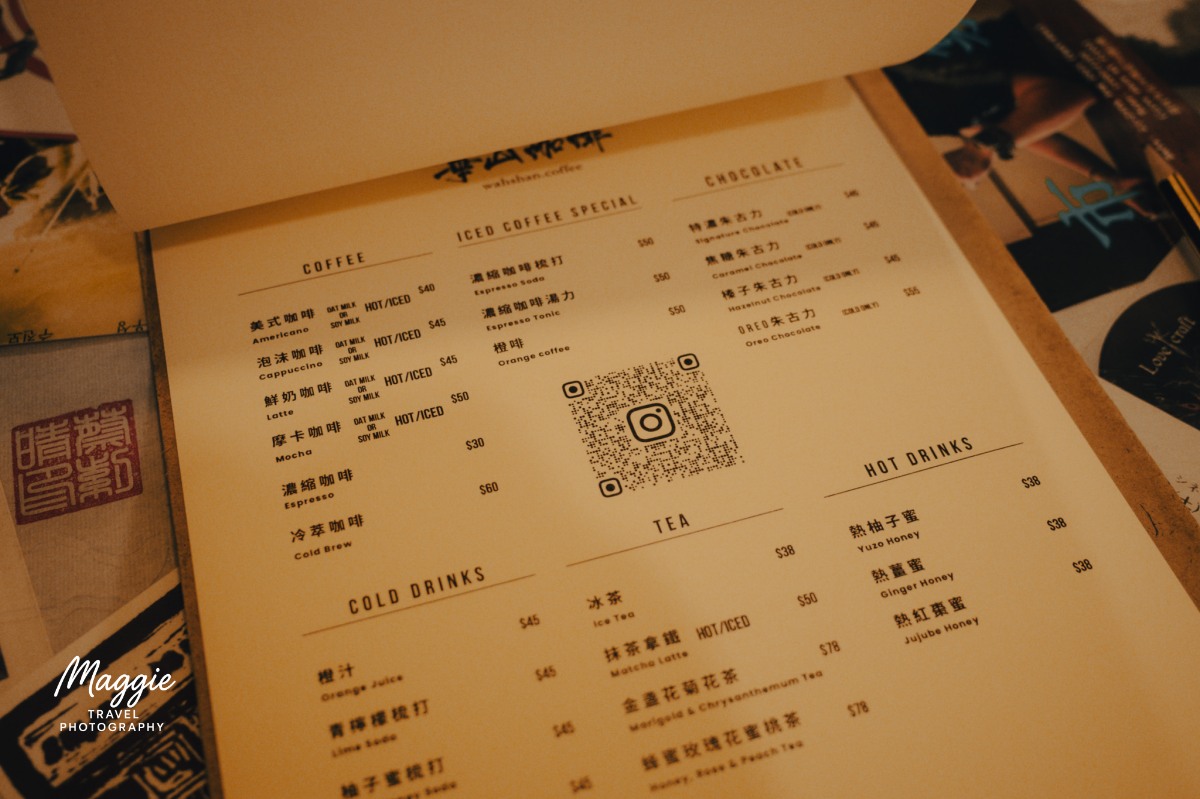 wahshan.coffee
COFFEE
美式咖啡 OAT MILK OR SOY MILK HOT/ICED $40
Americano
泡沫咖啡 OAT MILK OR SOY MILK HOT/ICED $45
Cappuccino
鮮奶咖啡 OAT MILK OR SOY MILK HOT/ICED $45
Latte
摩卡咖啡 OAT MILK OR SOY MILK HOT/ICED $50
Mocha
濃縮咖啡 $30
Espresso
冷萃咖啡 $60
Cold Brew
ICED COFFEE SPECIAL
濃縮咖啡梳打 $50
Espresso Soda
濃縮咖啡湯力 $50
Espresso Tonic
橙啡 $50
Orange coffee
CHOCOLATE
特濃朱古力 $45
Signature Chocolate
焦糖朱古力 $45
Caramel Chocolate
榛子朱古力 $45
Hazelnut Chocolate
OREO朱古力 $55
Oreo Chocolate
COLD DRINKS
橙汁 $45
Orange Juice
青檸檬梳打 $45
Lime Soda
柚子蜜梳打 $45
$45
TEA
冰茶 $38
Ice Tea
抹茶拿鐵 HOT/ICED $50
Matcha Latte
金盞花菊花茶 $78
Marigold & Chrysanthemum Tea
蜂蜜玫瑰花蜜桃茶 $78
Honey, Rose & Peach Tea
HOT DRINKS
熱柚子蜜 $38
Yuzo Honey
熱薑蜜 $38
Ginger Honey
熱紅棗蜜 $38
Jujube Honey
Love craft
Maggie
TRAVEL
PHOTOGRAPHY